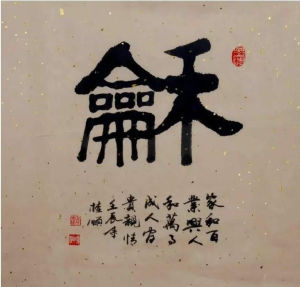 龢
家和百
業興人
和萬事
成人
貴親情
壬辰年
桂